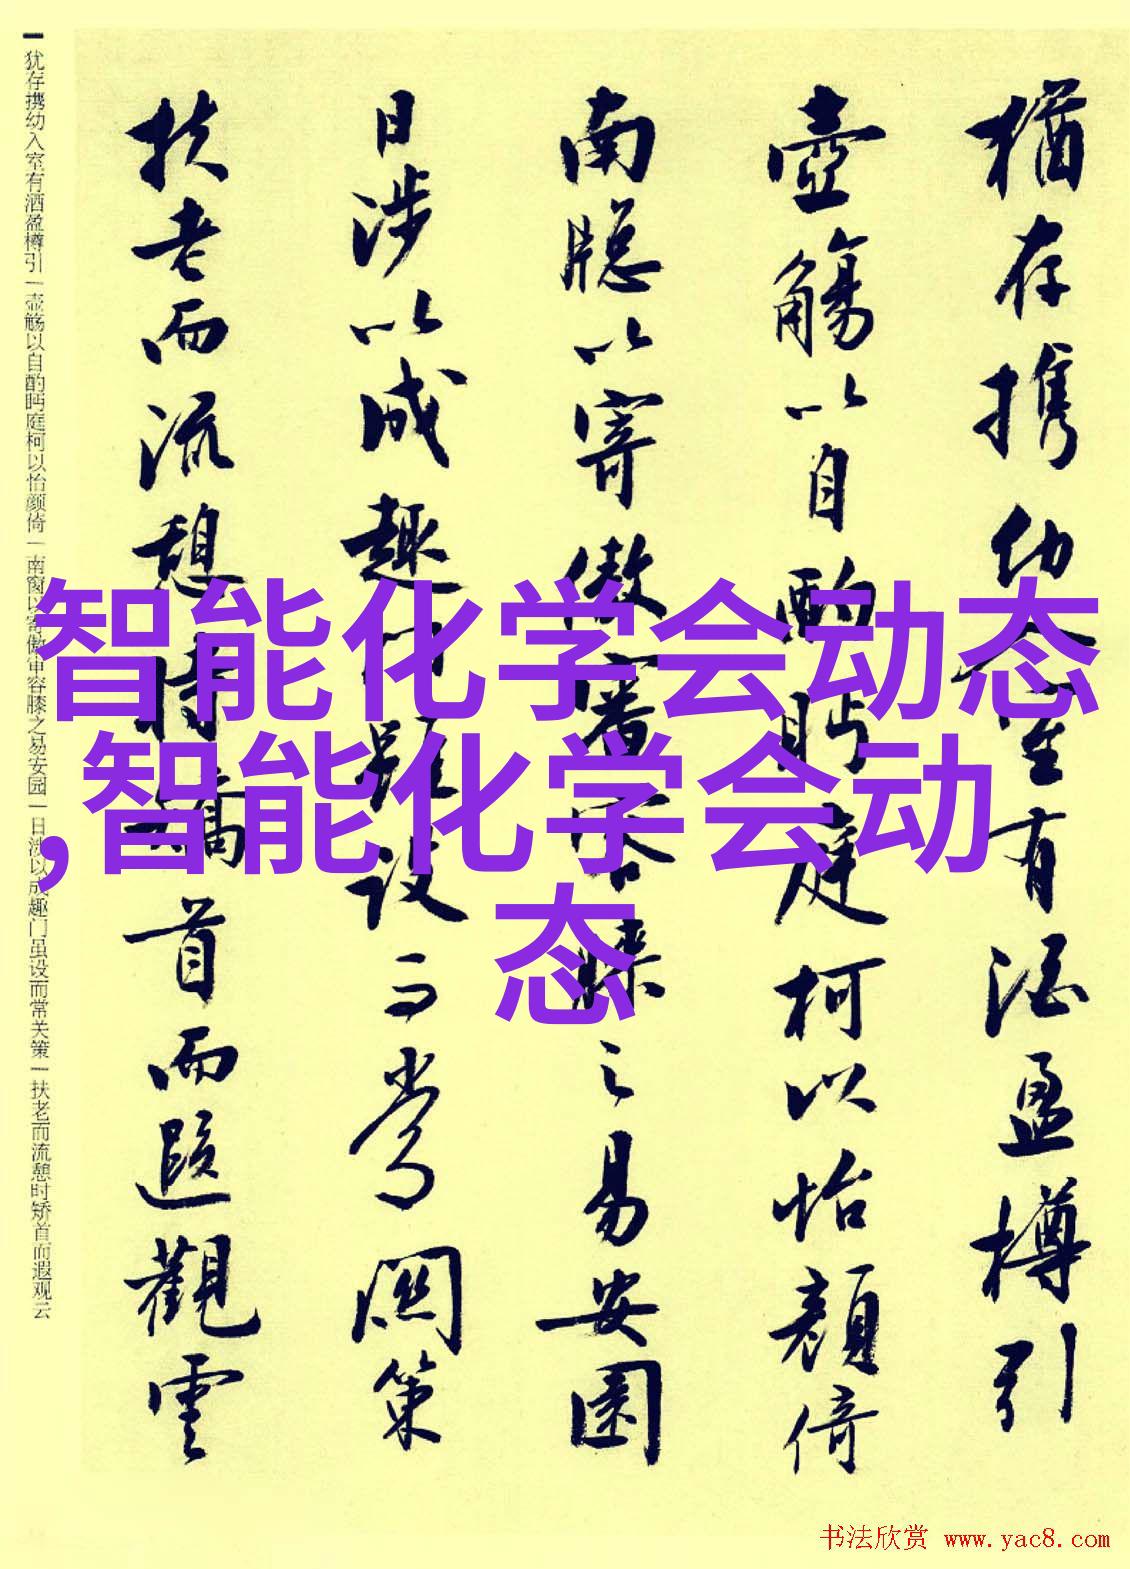 猶存携幼入室有酒盈樽引
壺觴以自酌眄庭柯以怡顔倚
南牕以寄傲審容膝之易安園
日涉以成趣門雖設而常関策
扶老而流憩時矯首而遐觀雲
犹存携幼入室有洒盈樽引|壶觞以自酌眄庭柯以怡颜倚|南窗以寄傲审容膝之易安园|日涉以成趣门虽设而常关策|扶老而流憩时矫首而遐观云
智能化学会动态
,智能化学会动
态
书法欣赏 www.yac8.com